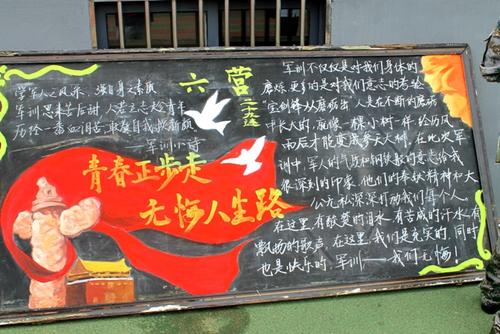 学军人之风采 强自身之素质
军训思来苦后甜 人若立志趁青年
历经一番血泪苦 敢教自我换新颜
——军训小诗
六营
二十九连
青春正步走
无悔人生路
军训不仅仅是对我们身体的
磨炼 更多的是对我们意志的考验
"宝剑锋从磨砺出" 人是在不断的磨砺
中长大的 就像一棵小树一样 经历风
雨后才能变成参天大树 在此次军
训中 军人的气质和钢铁般的意志给我
很深刻的印象 他们的奉献精神和大
公无私深深打动我们每个人
在这里 有酸楚的泪水 有苦咸的汗水 有
飘扬的歌声 在这里 我们是充实的 同时
也是快乐的 军训——我们无悔！